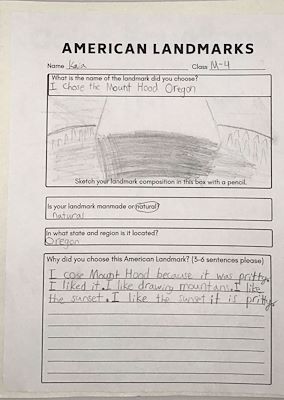 AMERICAN LANDMARKS
Name Kaia Class M-4
What is the name of the landmark did you choose?
I chose the Mount Hood Oregon
Sketch your landmark composition in this box with a pencil.
Is your landmark manmade or natural?
natural
In what state and region is it located?
Oregon
Why did you choose this American Landmark? (3-6 sentences please)
I cose Mount Hood because it was pritty.
I liked it. I like drawing mountans. I like
the sunset. I like the sunset it is pritty.